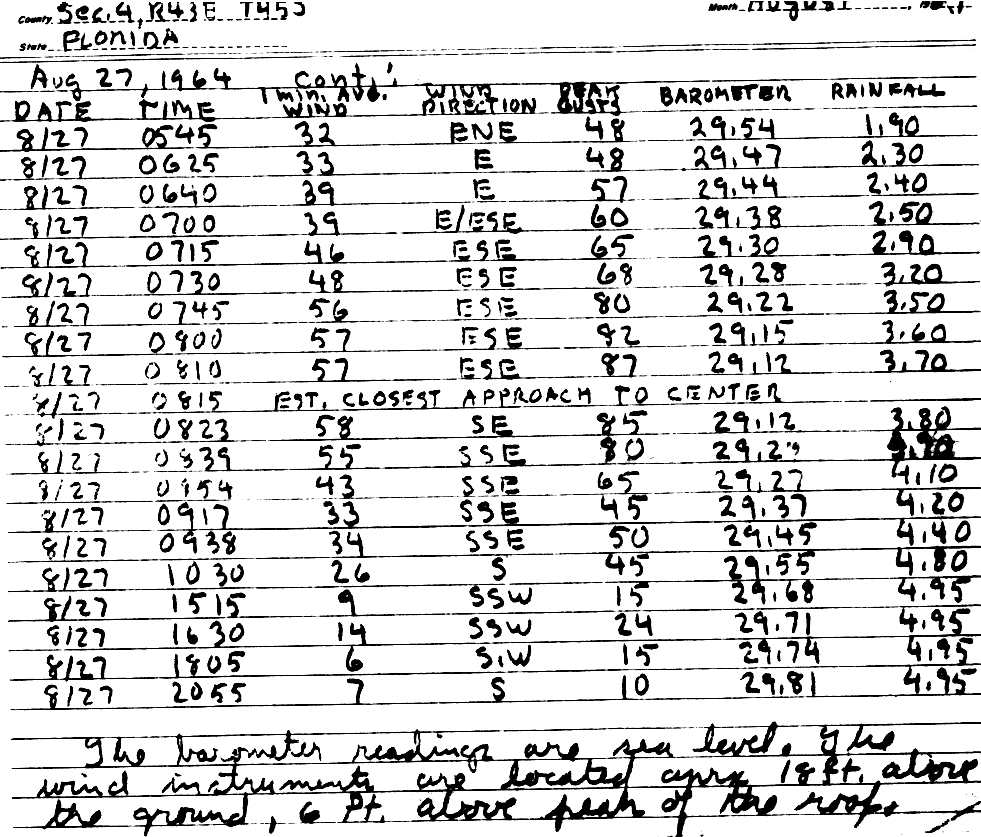 County Sec. 4, R43E T45S Month August
State FLORIDA
Aug 27, 1964 Cont.'
DATE TIME 1 min. Avg. WIND WIND DIRECTION PEAK GUSTS BAROMETER RAINFALL
8/27 0545 32 ENE 48 29.54 1.90
8/27 0625 33 E 48 29.47 2.30
8/27 0640 39 E 57 29.44 2.40
8/27 0700 39 E/ESE 60 29.38 2.50
8/27 0715 46 ESE 65 29.30 2.90
8/27 0730 48 ESE 68 29.28 3.20
8/27 0745 56 ESE 80 29.22 3.50
8/27 0800 57 ESE 82 29.15 3.60
8/27 0810 57 ESE 87 29.12 3.70
8/27 0815 EST. CLOSEST APPROACH TO CENTER
8/27 0823 58 SE 85 29.12 3.80
8/27 0839 55 SSE 80
8/27 0854 43 SSE 65 29.27 4.10
8/27 0917 33 SSE 45 29.37 4.20
8/27 0938 34 SSE 50 29.45 4.40
8/27 1030 26 S 45 29.55 4.80
8/27 1515 9 SSW 15 29.68 4.95
8/27 1630 14 SSW 24 29.71 4.95
8/27 1805 6 S.W 15 29.74 4.95
8/27 2055 7 S 10 29.81 4.95
The barometer readings are sea level. The
wind instruments are located aprx 18 ft. above
the ground, 6 ft. above peak of the roof.